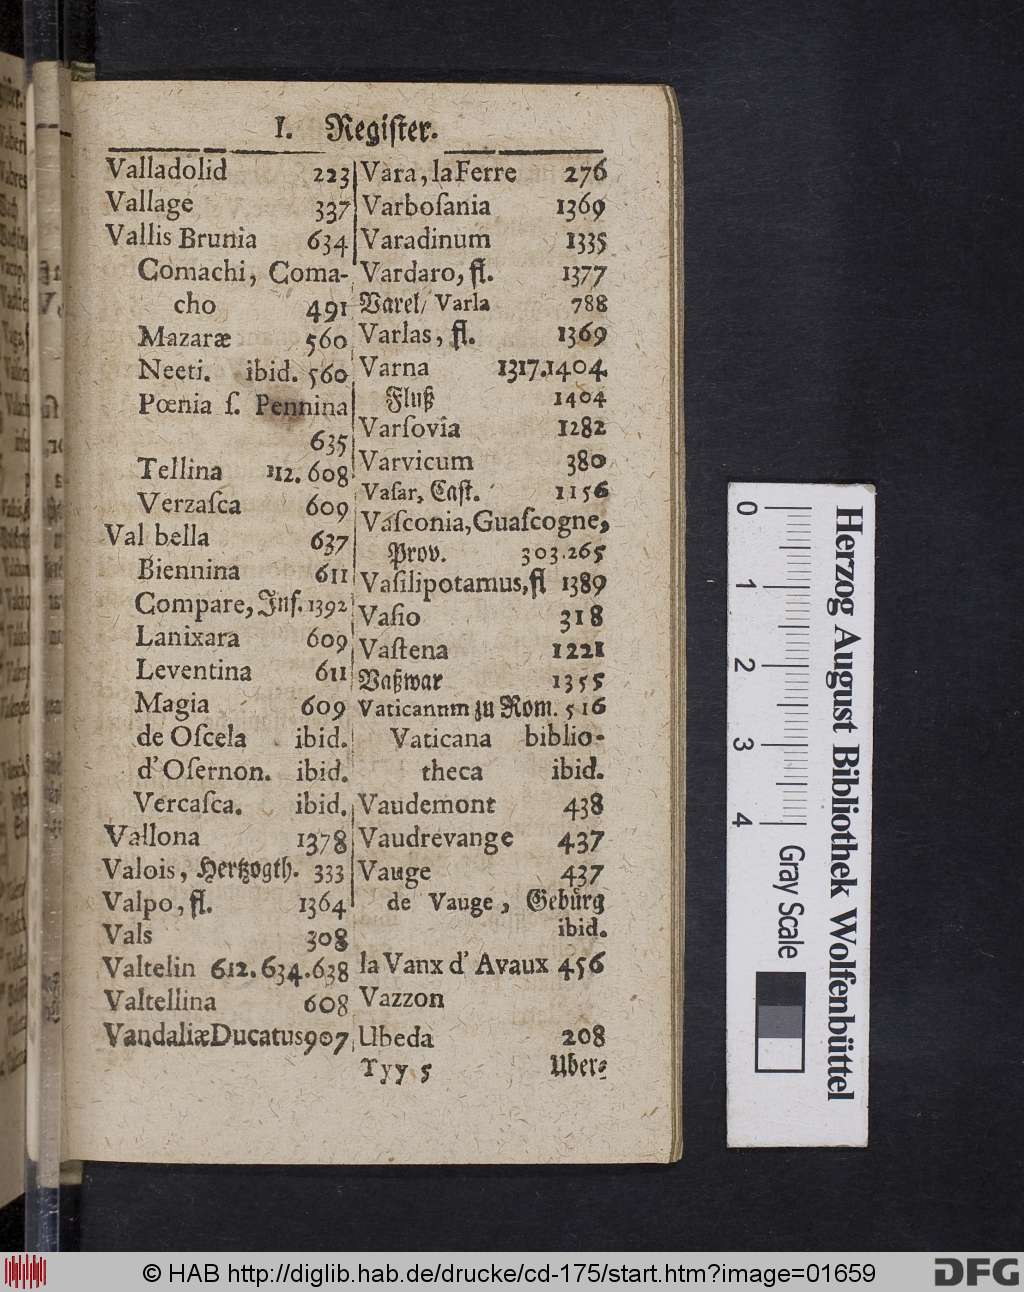 I. Regiſter.
Valladolid 223
Vallage 337
Vallis Brunia 634
Comachi, Coma-
cho 491
Mazaræ 560
Neeti. ibid. 560
Pœnia ſ. Pennina
635
Tellina 112. 608
Verzaſca 609
Val bella 637
Biennina 611
Compare, Inſ. 1392
Lanixara 609
Leventina 611
Magia 609
de Oſcela ibid.
d'Oſernon. ibid.
Vercaſca. ibid.
Vallona 1378
Valois, Hertzogth. 333
Valpo, fl. 1364
Vals 308
Valtelin 612. 634. 638
Valtellina 608
Vandaliæ Ducatus 907
Vara, la Ferre 276
Varboſania 1369
Varadinum 1335
Vardaro, fl. 1377
Varel/ Varla 788
Varlas, fl. 1369
Varna 1317. 1404.
Fluß 1404
Varſovia 1282
Varvicum 380
Vaſar, Caſt. 1156
Vaſconia, Guaſcogne,
Prov. 303. 265
Vaſilipotamus, fl 1389
Vaſio 318
Vaſtena 1221
Vaßwar 1355
Vaticanum zu Rom. 516
Vaticana biblio-
theca ibid.
Vaudemont 438
Vaudrevange 437
Vauge 437
de Vauge, Gebürg
ibid.
la Vanx d' Avaux 456
Vazzon
Ubeda 208
Tyy 5 Uber-
Herzog August Bibliothek Wolfenbüttel
0 1 2 3 4
Gray Scale
© HAB http://diglib.hab.de/drucke/cd-175/start.htm?image=01659
DFG